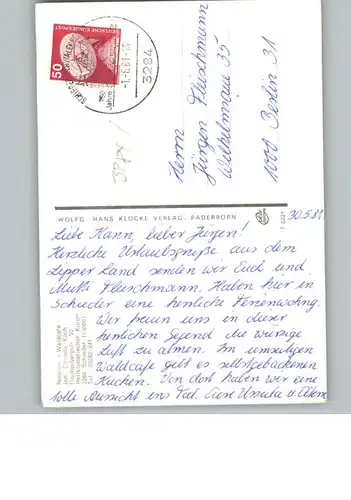 50
DEUTSCHE BUNDESPOST
-1.-6.81-
3284
750
Jahre
Herrn
Jürgen Fleischmann
Wilhelmsaue 35
1000 Berlin 31
WOLFG. HANS KLOCKE VERLAG, PADERBORN
30.5.81
Liebe Karin, lieber Jürgen!
Herzliche Urlaubsgrüße aus dem
Lipper Land senden wir Euch und
Mutti Fleischmann. Haben hier in
Schieder eine herrliche Ferienwohng.
Wir freuen uns in dieser
herrlichen Gegend die würzige
Luft zu atmen. Im urwaldigen
Waldcafe gibt es selbstgebackenen
Kuchen. Von dort haben wir eine
tolle Aussicht ins Tal. Eure Ursula u.
Pension - Waldcafe
Heilklimatischer Kurort
3284 Schieder (Lippe)